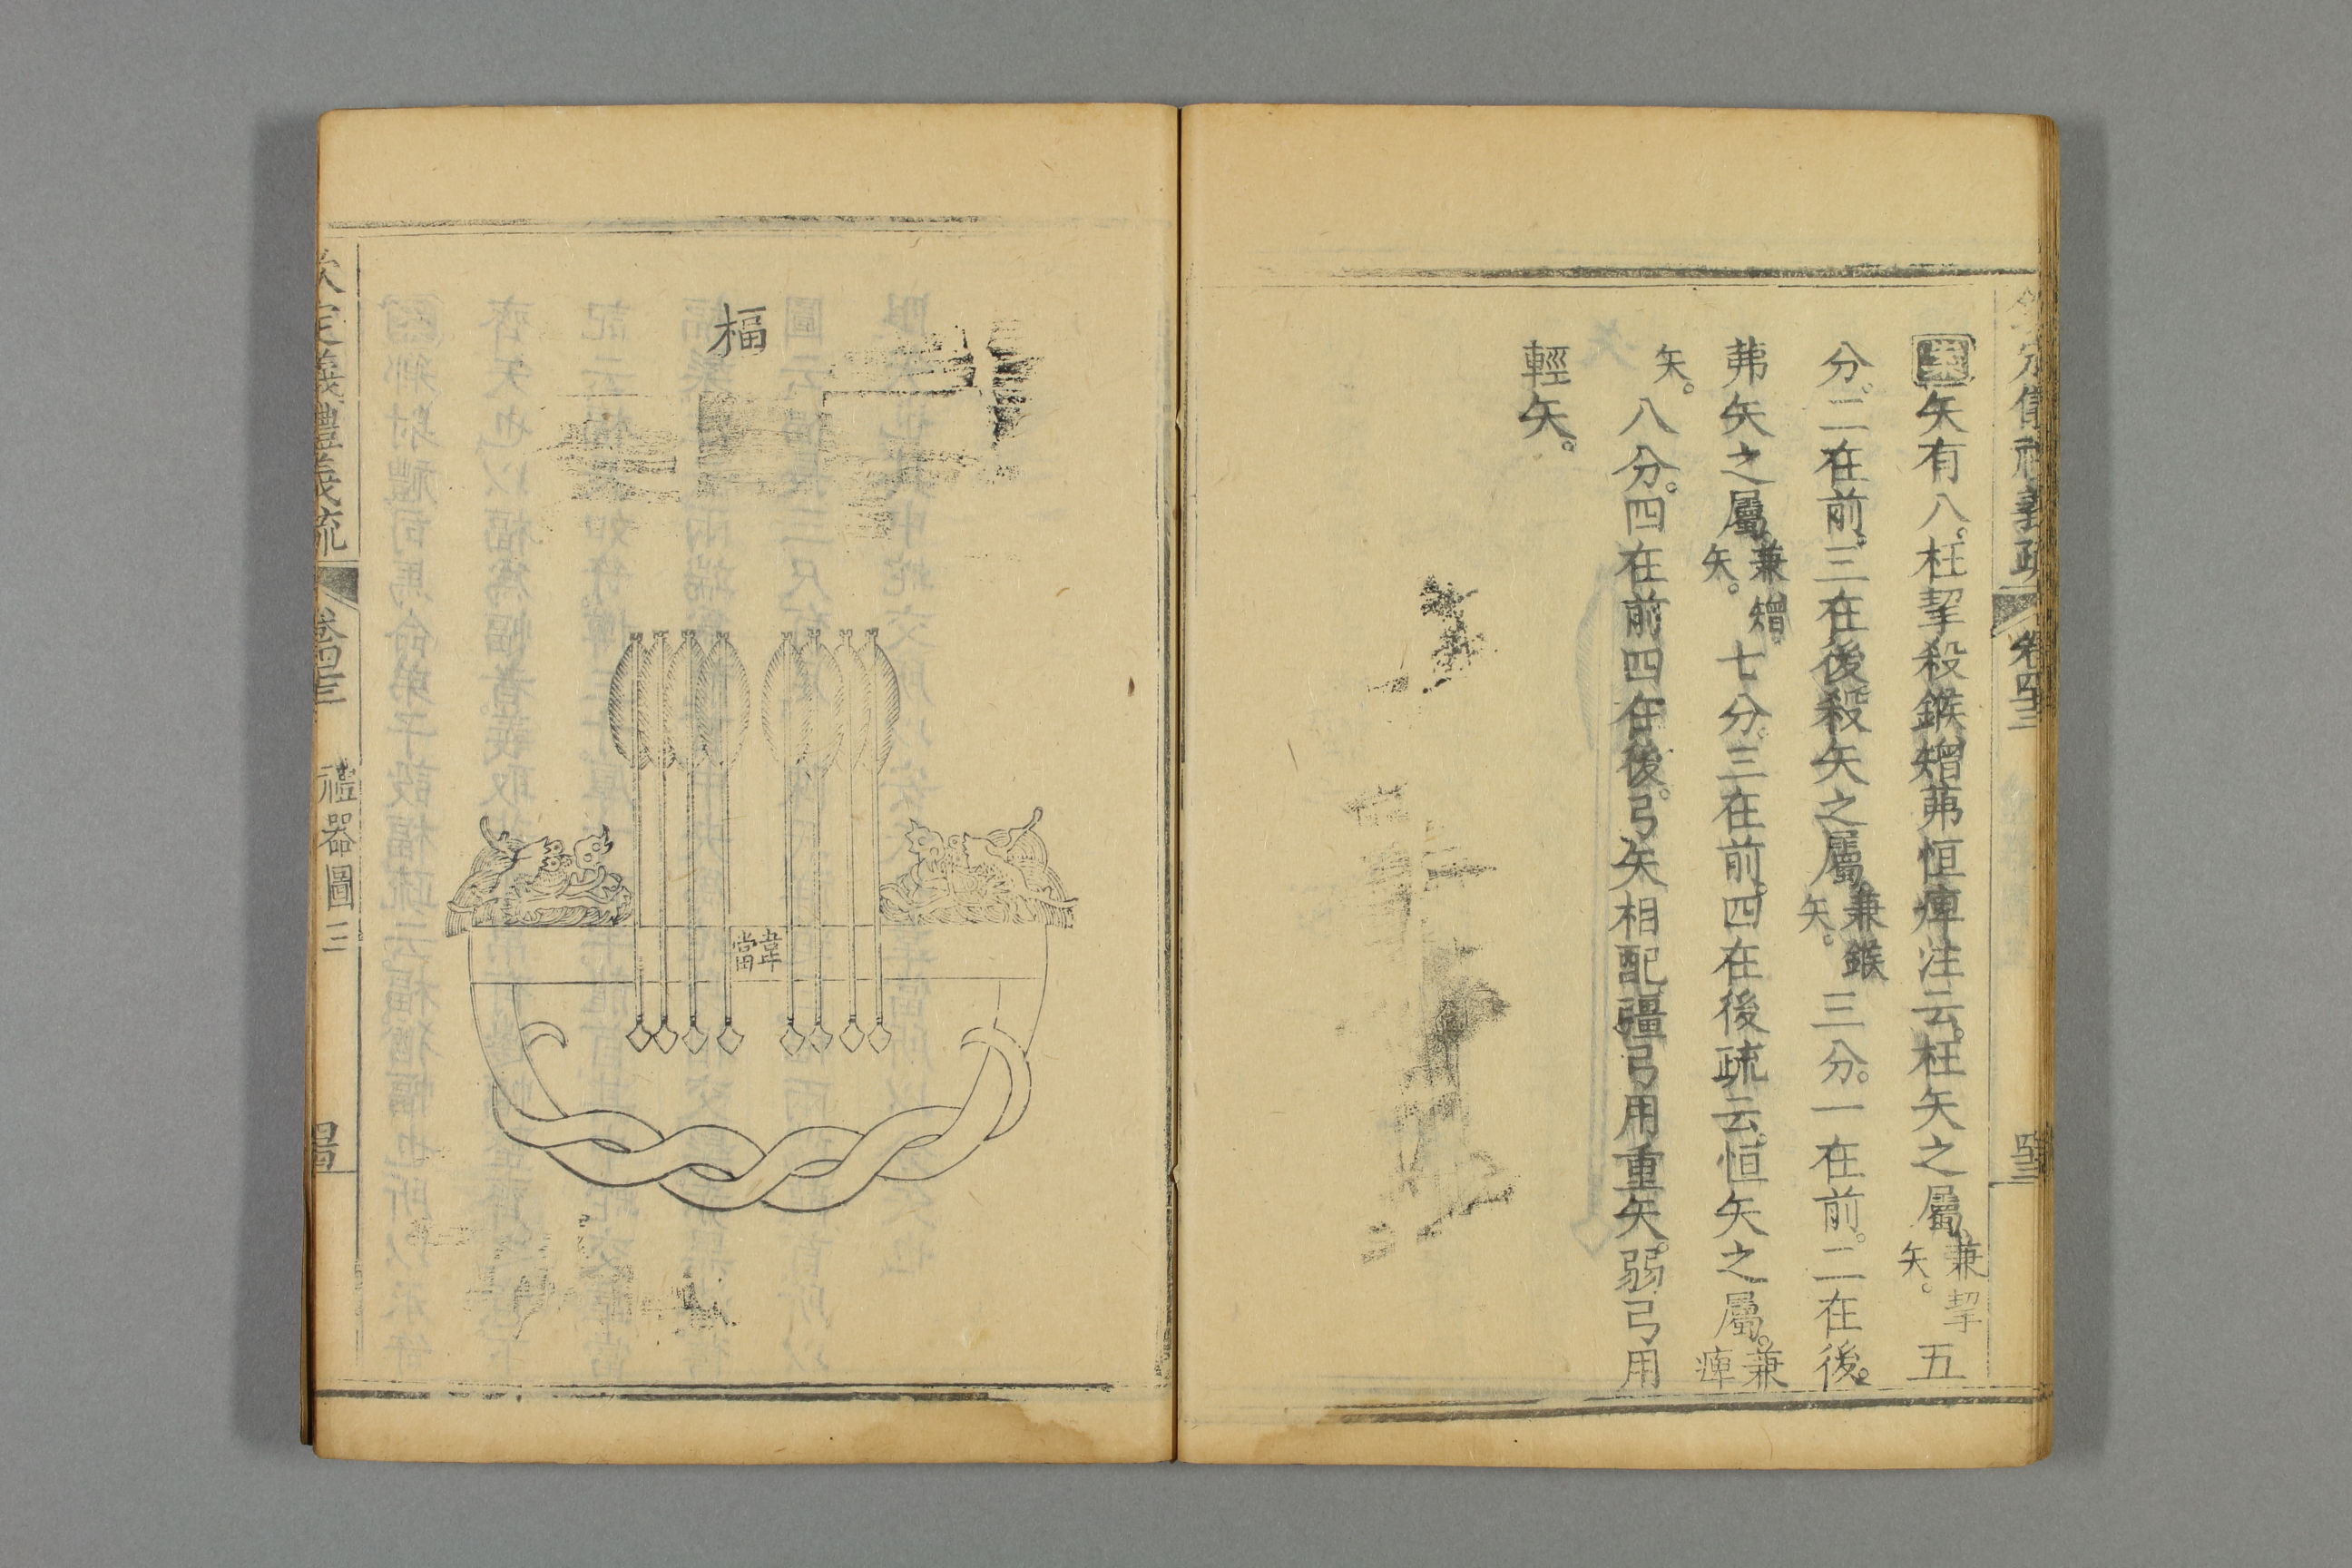 欽定儀禮義疏 卷四十三 四十三
案矢有八枉挈殺鍭矰茀恒痺注云枉矢之屬兼挈矢五
分二在前三在後殺矢之屬兼鍭矢三分一在前二在後
茀矢之屬兼矰矢七分三在前四在後疏云恒矢之屬兼痺
矢八分四在前四在後弓矢相配彊弓用重矢弱弓用
輕矢
楅
韋當
欽定義禮義疏 卷四十三 禮器圖三